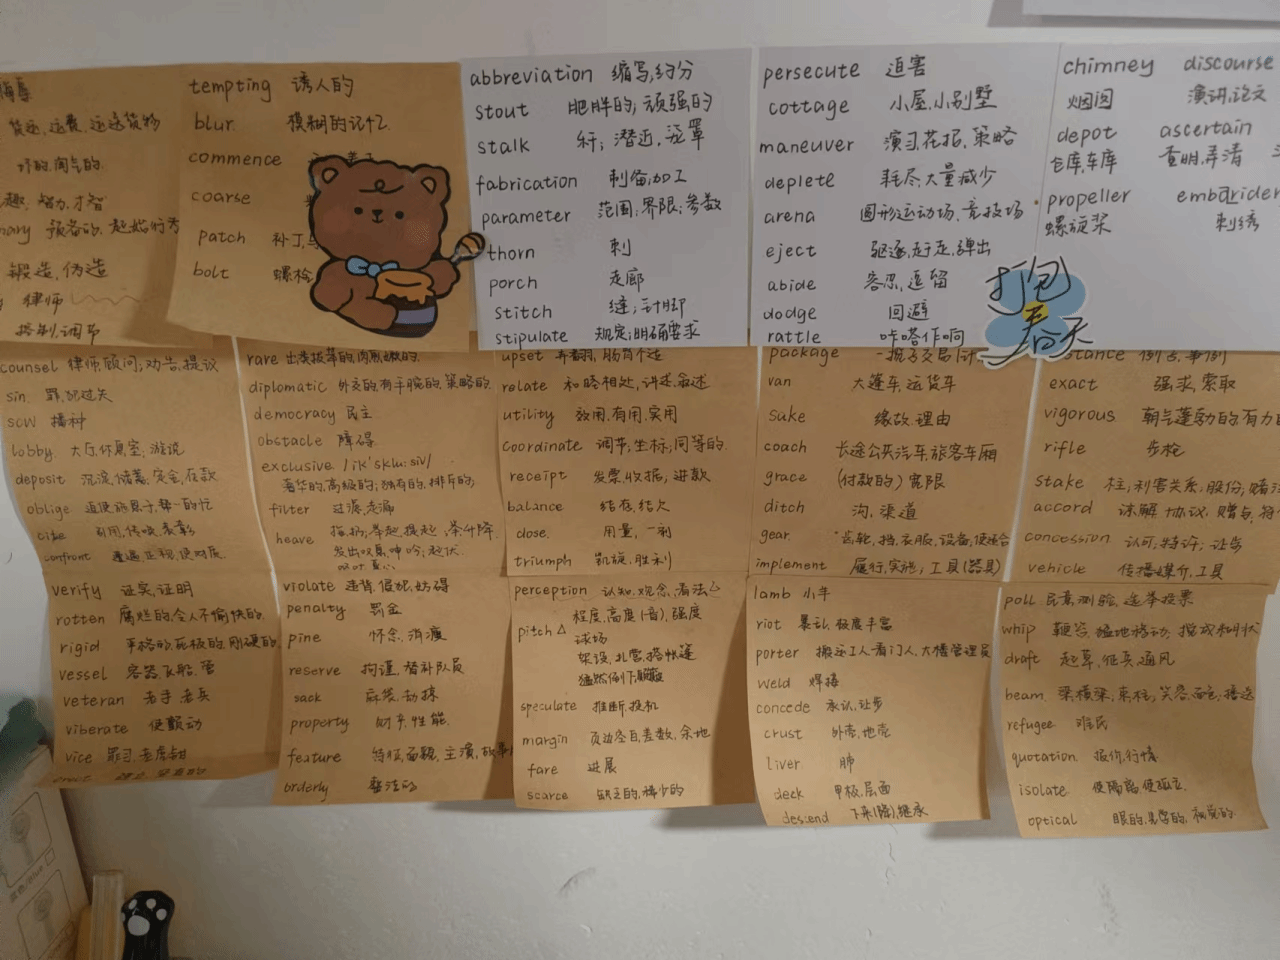 货运,运费,运送货物
淘气的.
趣,智力,才智
锻造,伪造
律师
控制,调节
tempting 诱人的
blur. 模糊的记忆
commence
coarse
patch 补丁,
bolt 螺栓
abbreviation 缩写,约分
stout 肥胖的;顽强的
stalk 秆;潜近,笼罩
fabrication 制备,加工
parameter 范围;界限;参数
thorn 刺
porch 走廊
stitch 缝;针脚
stipulate 规定;明确要求
persecute 迫害
cottage 小屋,小别墅
maneuver 演习,花招,策略
deplete 耗尽,大量减少
arena 圆形运动场、竞技场
eject 驱逐,赶走,弹出
abide 容忍,逗留
dodge 回避
rattle 咔嗒作响
chimney discourse
烟囱 演讲,论文
depot ascertain
仓库,车库 查明,弄清
propeller embroider
螺旋桨 刺绣
打包
春天
counsel 律师,顾问;劝告,提议
sin. 罪,犯过失
sow 播种
lobby 大厅,休息室;游说
deposit 沉淀,储蓄,定金,存款
oblige
cite 引用,传唤,表彰
confront 遭遇,正视,使对质
rare
diplomatic 外交的,有手腕的,策略的
democracy 民主
obstacle 障碍
exclusive /ɪkˈskluːsɪv/
奢华的,高级的;独有的,排斥的;
filter 过滤,走漏
heave 拖,扔;举起,提起
upset
relate 和睦相处,讲述,叙述
utility 效用,有用,实用
coordinate 调节,坐标,同等的
receipt 发票,收据;进款
balance 结存,结欠
close.
triumph 凯旋,胜利
package 一揽子交易
van 大篷车,运货车
sake 缘故,理由
coach 长途公共汽车,旅客车厢
grace (付款的)宽限
ditch 沟,渠道
gear 齿轮,挡,衣服,设备,使适合
implement 履行,实施;工具(器具)
exact 强求,索取
vigorous 朝气蓬勃的,有力
rifle 步枪
stake 桩;利害关系,股份;赌注
accord 谅解,协议,赠与,符
concession 认可;特许;让步
vehicle 传播媒介,工具
verify 证实,证明
rotten 腐烂的,令人不愉快的
rigid 严格的,死板的,刚硬的
vessel 容器,飞船,管
veteran 老手,老兵
viberate 使颤动
vice 罪习,老虎钳
violate 违背,侵犯,妨碍
penalty 罚金
pine 怀念,消瘦
reserve 拘谨,替补队员
sack 麻袋,劫掠
property 财产,性能.
feature 特征,面貌,主演,故事
orderly 整洁的
perception 认知,观念,看法△
pitch△ 程度,高度(音),强度
球场
架设,扎营,搭帐篷
猛然倒下,颠簸
speculate 推断,投机
margin 页边空白,差数,余地
fare 进展
scarce 缺乏的,稀少的
lamb 小羊
riot 暴乱,极度丰富
porter 搬运工人,看门人,大楼管理员
weld 焊接
concede 承认,让步
crust 外壳,地壳
liver 肺
deck 甲板,层面
descend 下来(降),继承
poll 民意测验,选举投票
whip
draft 起草,征兵,通风
beam 梁,横梁,束,柱,笑容,面色,播送
refugee 难民
quotation 报价,行情
isolate 使隔离,使孤立.
optical 眼的,光学的,视觉的